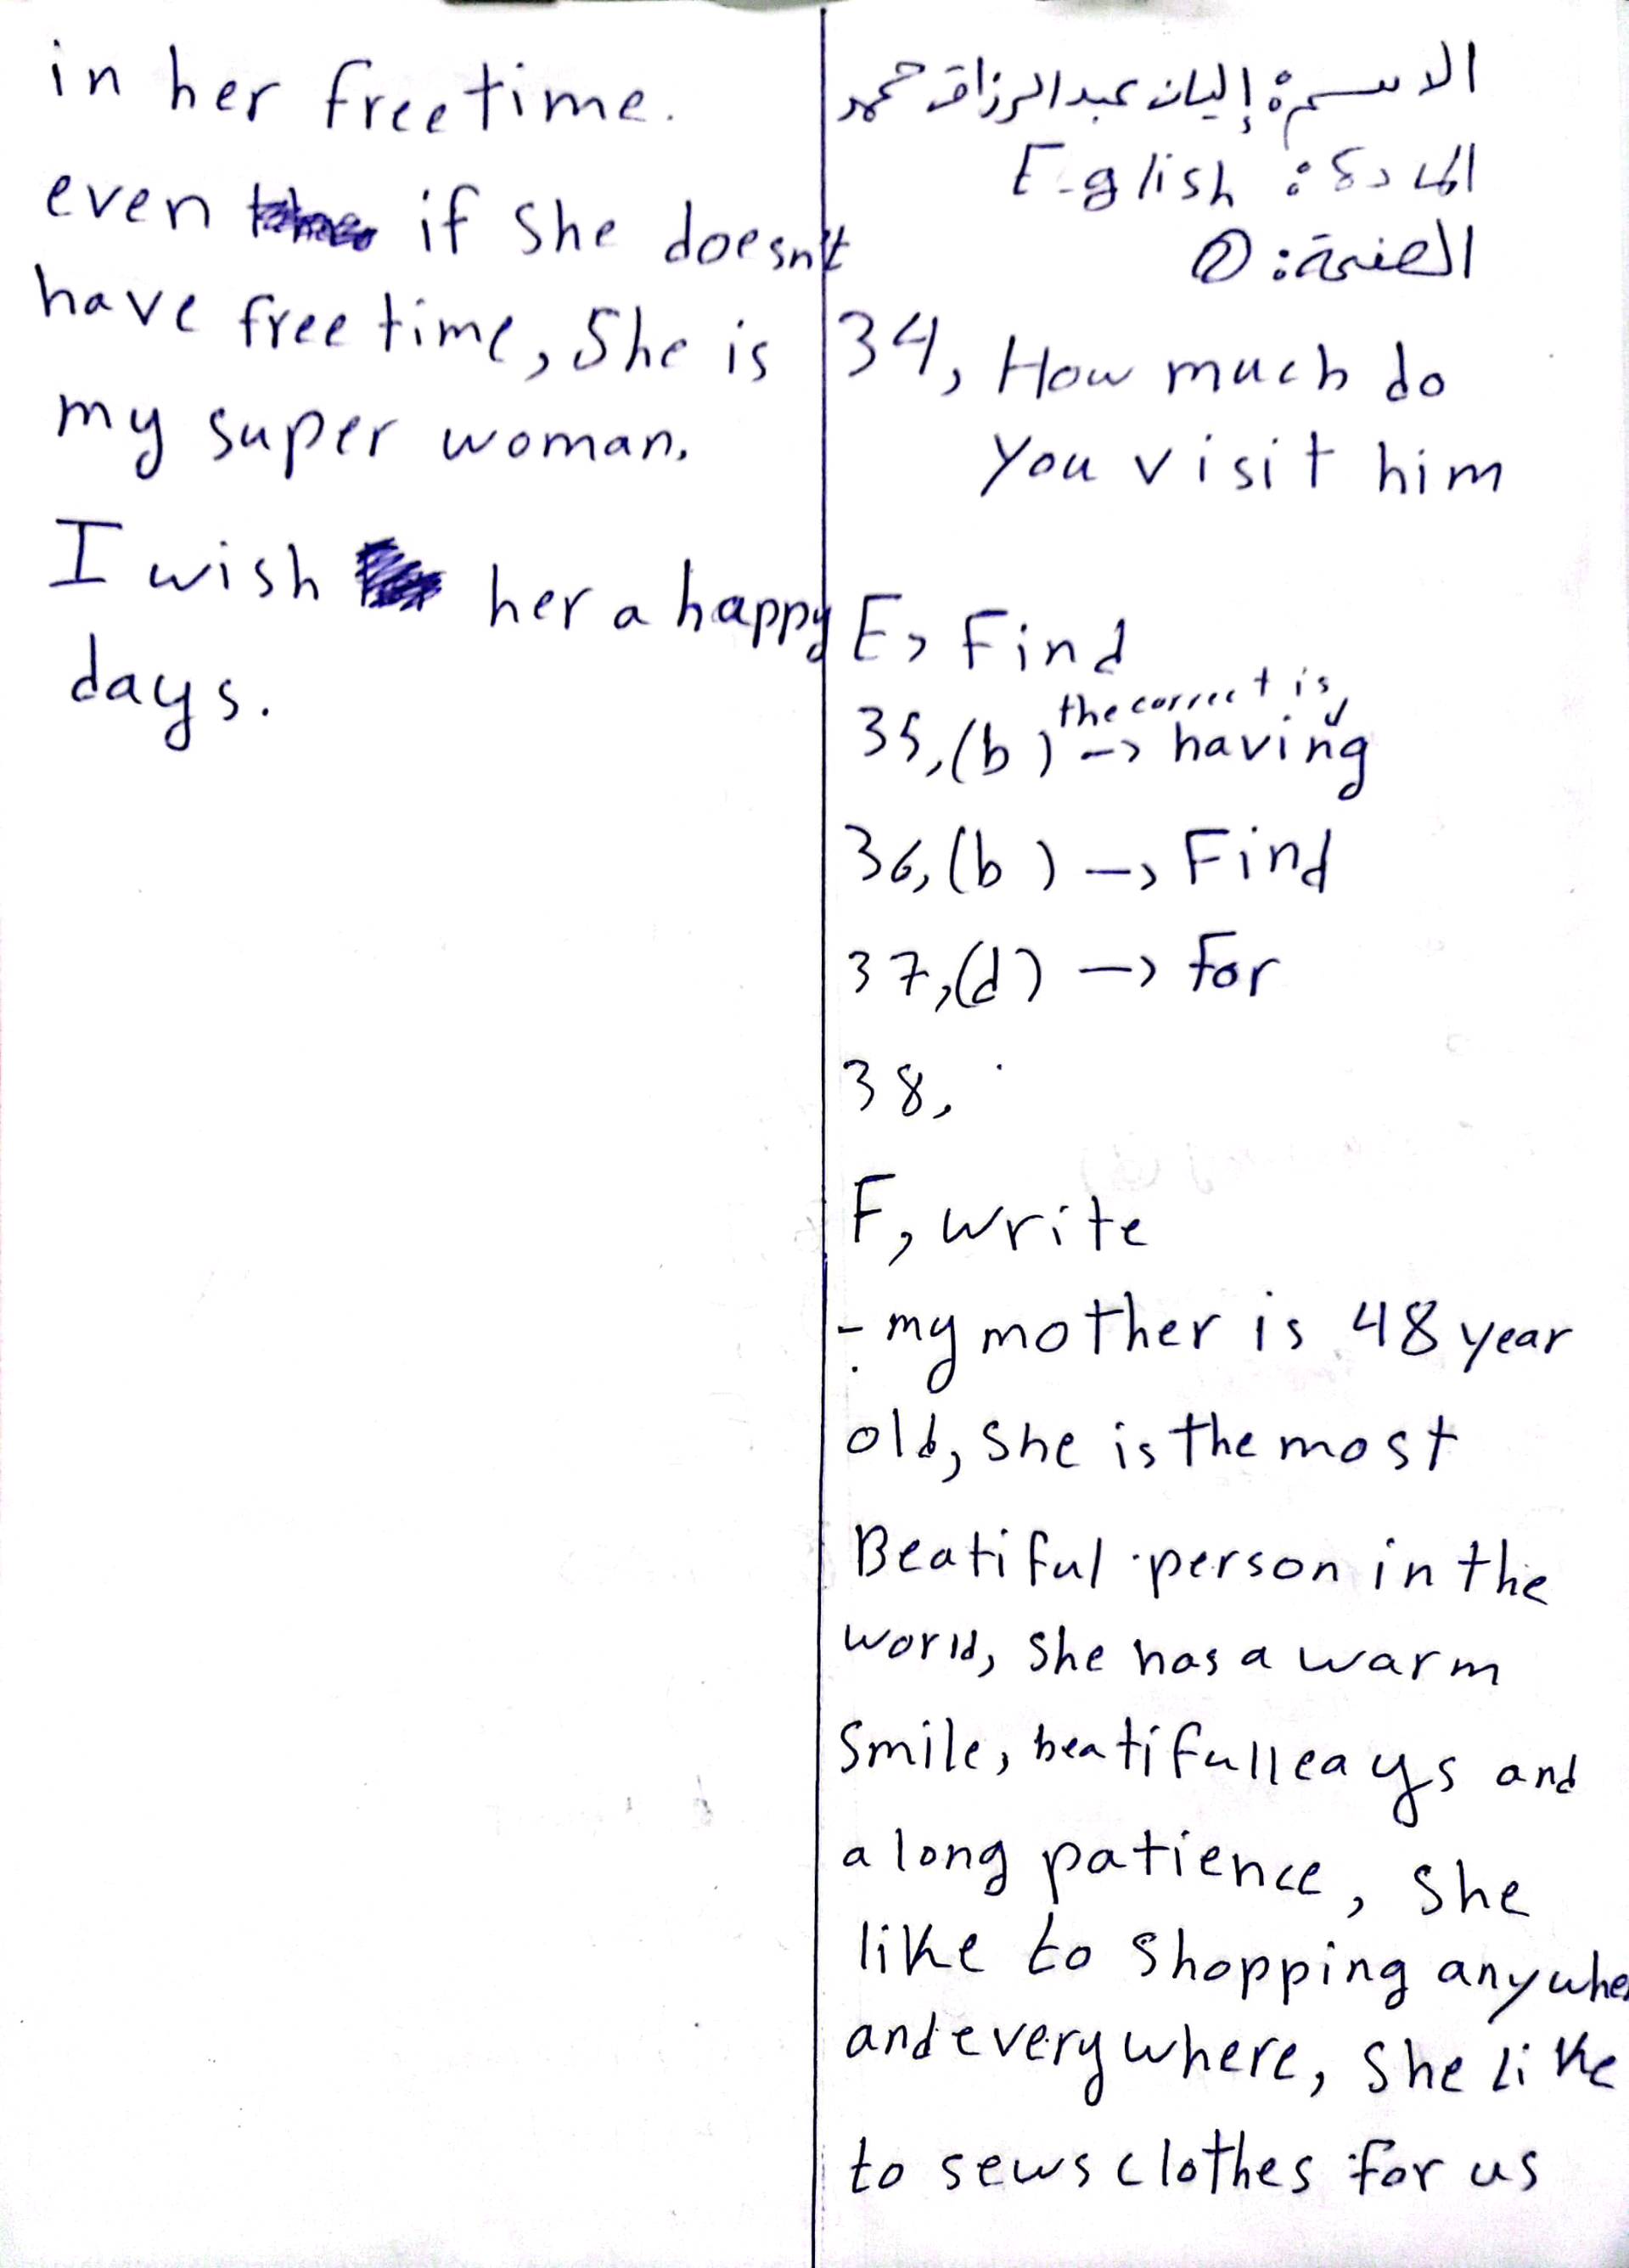 الاسم: إليان عبدالرزاق حمد
المادة: E-glish
الصفحة: ②
34, How much do
you visit him
E, Find
the correct is,
35, (b) -> having
36, (b) -> Find
37, (d) -> for
38,
F, write
- my mother is 48 year
old, she is the most
Beatiful person in the
world, she has a warm
smile, beatifull eays and
a long patience, she
like to shopping anywhe
and everywhere, she like
to sews clothes for us
in her free time.
even if she doesn't
have free time, She is
my super woman.
I wish her a happy
days.